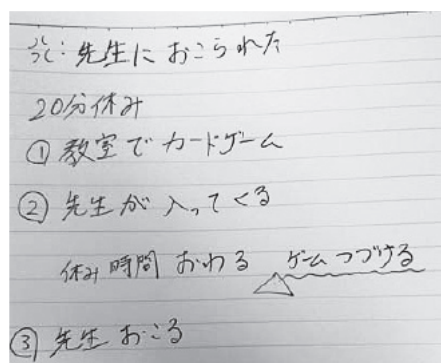 ：先生におこられた
20分休み
① 教室でカードゲーム
② 先生が入ってくる
休み時間 おわる ゲームつづける
③ 先生おこる